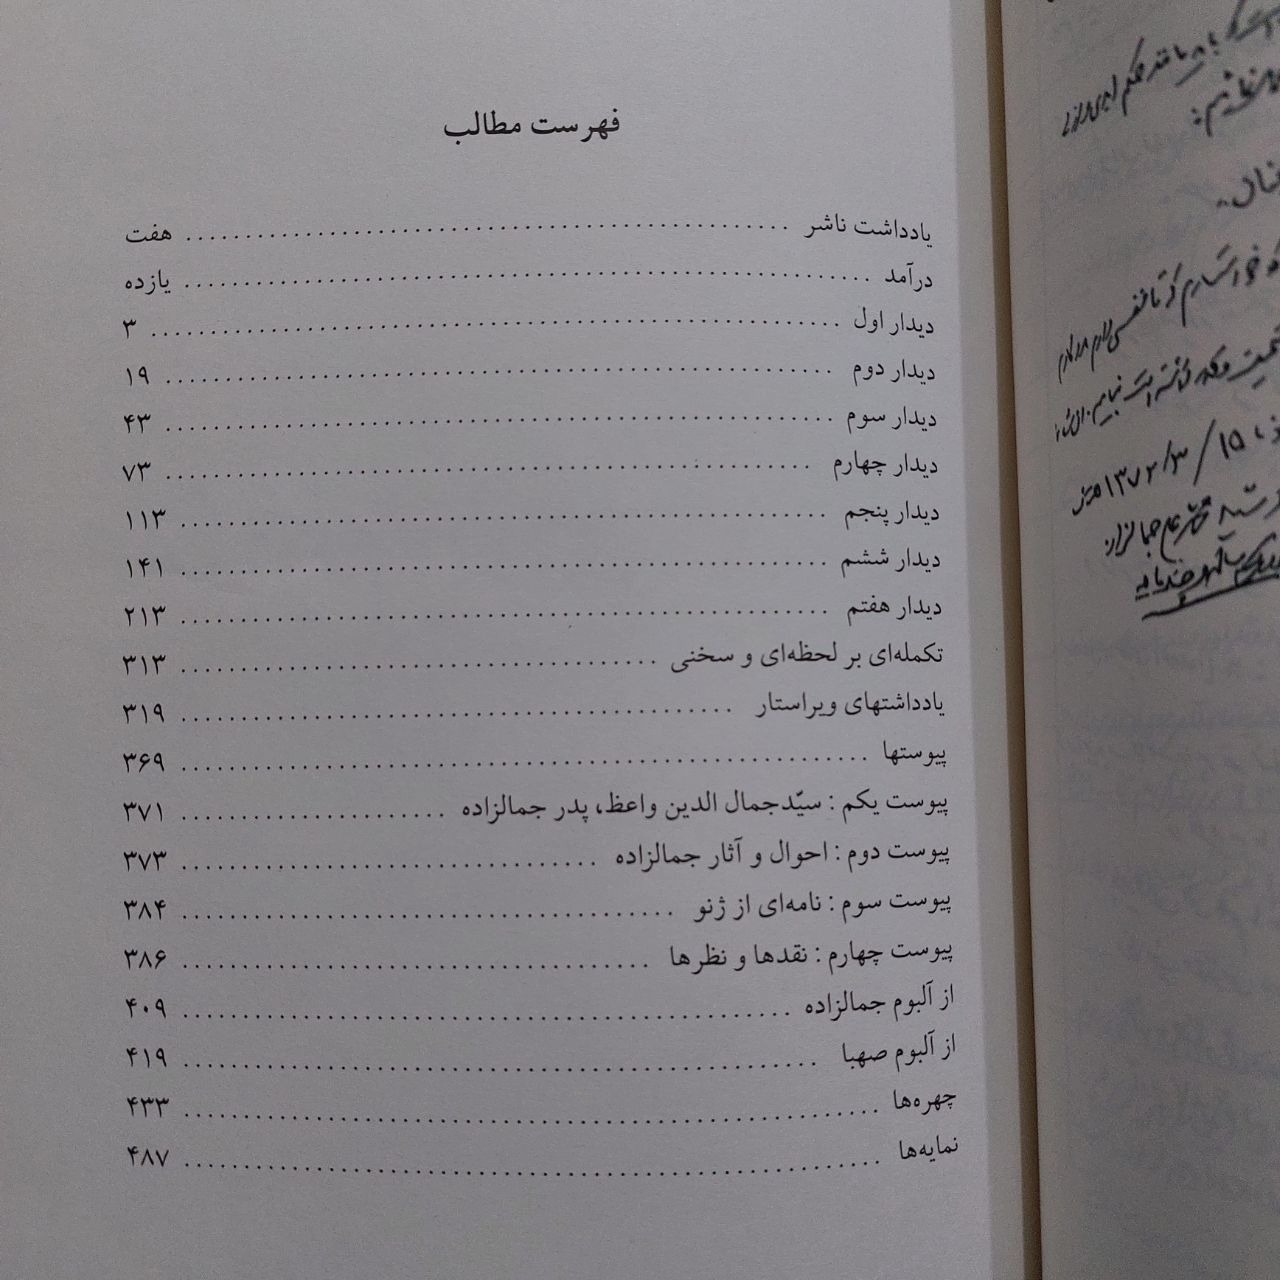 فهرست مطالب
یادداشت ناشر ........ هفت
درآمد ........ یازده
دیدار اول ........ ۳
دیدار دوم ........ ۱۹
دیدار سوم ........ ۴۳
دیدار چهارم ........ ۷۳
دیدار پنجم ........ ۱۱۳
دیدار ششم ........ ۱۴۱
دیدار هفتم ........ ۲۱۳
تکمله‌ای بر لحظه‌ای و سخنی ........ ۳۱۳
یادداشتهای ویراستار ........ ۳۱۹
پیوستها ........ ۳۶۹
پیوست یکم : سیّدجمال الدین واعظ، پدر جمالزاده ........ ۳۷۱
پیوست دوم : احوال و آثار جمالزاده ........ ۳۷۳
پیوست سوم : نامه‌ای از ژنو ........ ۳۸۴
پیوست چهارم : نقدها و نظرها ........ ۳۸۶
از آلبوم جمالزاده ........ ۴۰۹
از آلبوم صهبا ........ ۴۱۹
چهره‌ها ........ ۴۳۳
نمایه‌ها ........ ۴۸۷
۱۵/۳/۱۳۷۲